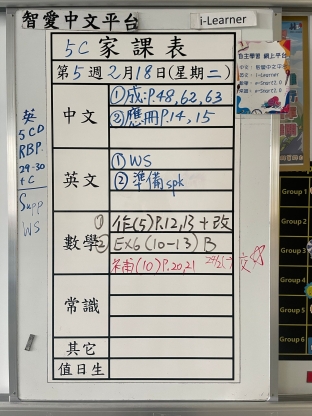 智愛中文平台
i-Learner
5C 家課表
第5週2月18日(星期二)
中文
①成:P.48,62,63
②應冊P.14,15
英文
①WS
②準備spk
數學
①作(5)P.12,13+改
②EX6(10-13)B
補(10)P.20,21
交
常識
其它
值日生
英
5CD
RBP.
29-30
+C
Supp
WS
自主學習 網上平台
Group 1
Group 2
Group 3
Group 4
Group 5
Group 6